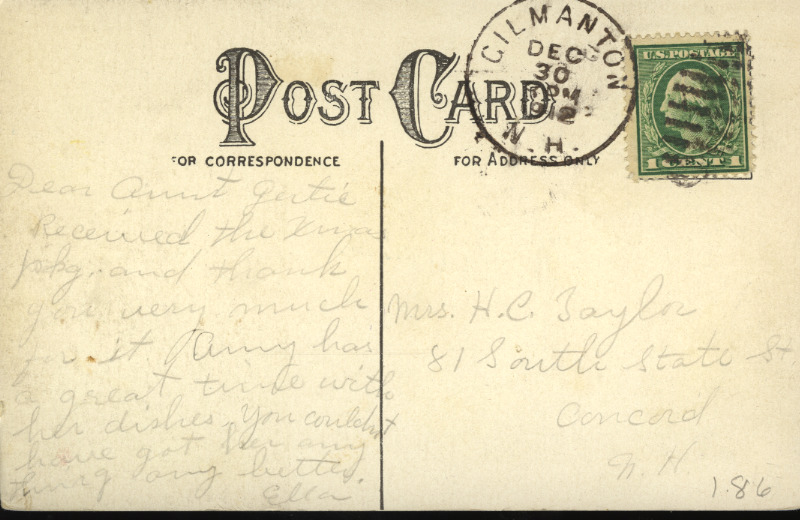 POST CARD
FOR CORRESPONDENCE
FOR ADDRESS ONLY
GILMANTON
DEC
30
PM
1912
N.H.
U.S. POSTAGE
1 CENT 1
Dear Aunt Gertie
Received the Xmas
pkg. and thank
you very much
for it Amy has
a great time with
her dishes. You couldn't
have got her any
thing any better
Ella.
Mrs. H.C. Taylor
81 South State St
Concord
N.H.
1.86